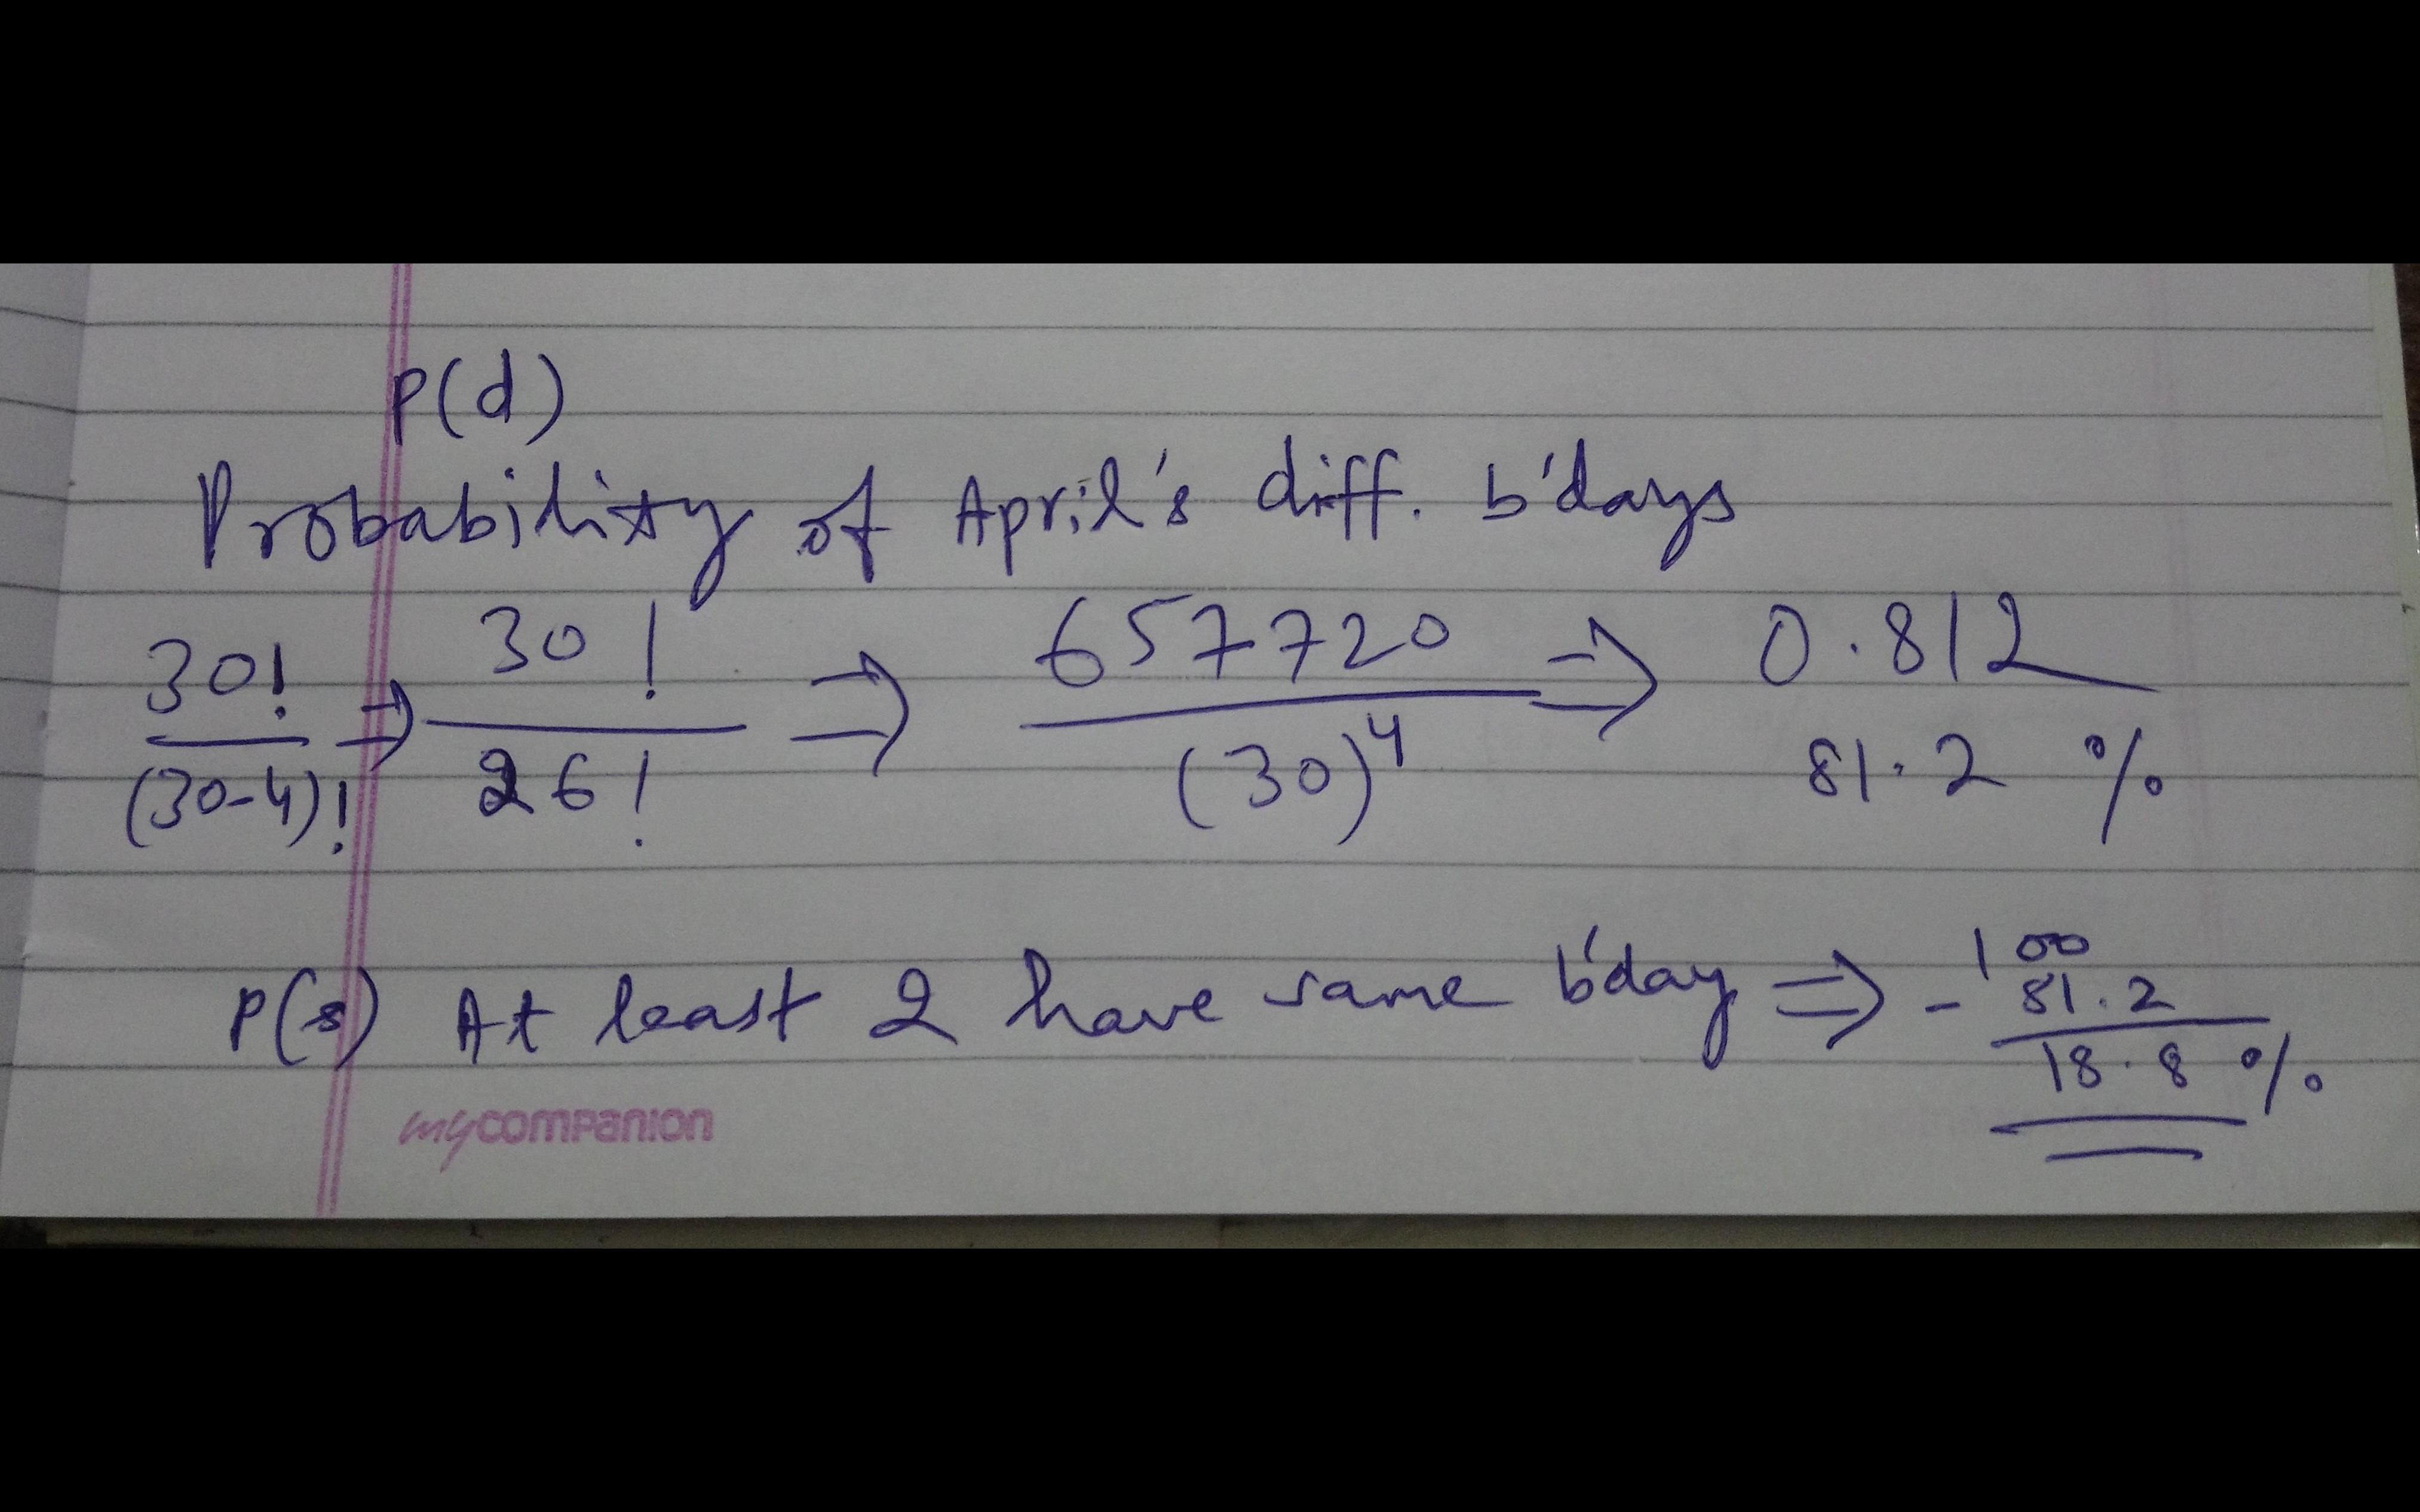 P(d)
Probability of April's diff. b'days
30!/(30-4)! ⇒ 30!/26! ⇒ 657720/(30)^4 ⇒ 0.812
81.2 %
P(s) At least 2 have same b'day ⇒ 100
- 81.2
18.8 %
mycompanion